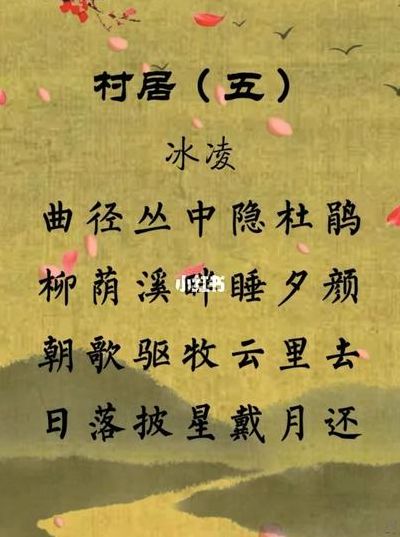 村居（五）
冰凌
曲径丛中隐杜鹃
柳荫溪畔睡夕颜
小红书
朝歌驱牧云里去
日落披星戴月还